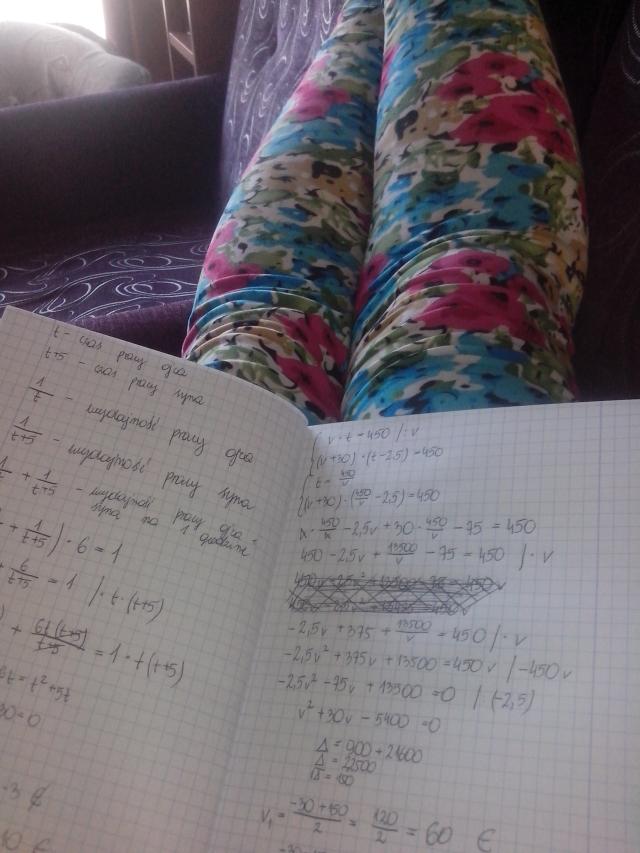 t - czas pracy ojca
t+5 - czas pracy syna
1/t - wydajność pracy ojca
1/(t+5) - wydajność pracy syna
1/t + 1/(t+5) - wydajność pracy ojca
syna na 1 godzinę
+ 1/(t+5)) · 6 = 1
+ 6/(t+5) = 1 / · t · (t+5)
+ 6t(t+5)/(t+5) = 1 · t(t+5)
6t = t² + 5t
30 = 0
{ v · t = 450 / : v
(v+30) · (t-2,5) = 450
{ t = 450/v
(v+30) · (450/v - 2,5) = 450
v · 450/v - 2,5v + 30 · 450/v - 75 = 450
450 - 2,5v + 13500/v - 75 = 450 / · v
-2,5v + 375 + 13500/v = 450 / · v
-2,5v² + 375v + 13500 = 450v / -450v
-2,5v² - 75v + 13500 = 0 / (-2,5)
v² + 30v - 5400 = 0
Δ = 900 + 21600
Δ = 22500
√Δ = 150
v₁ = (-30+150)/2 = 120/2 = 60 ∈